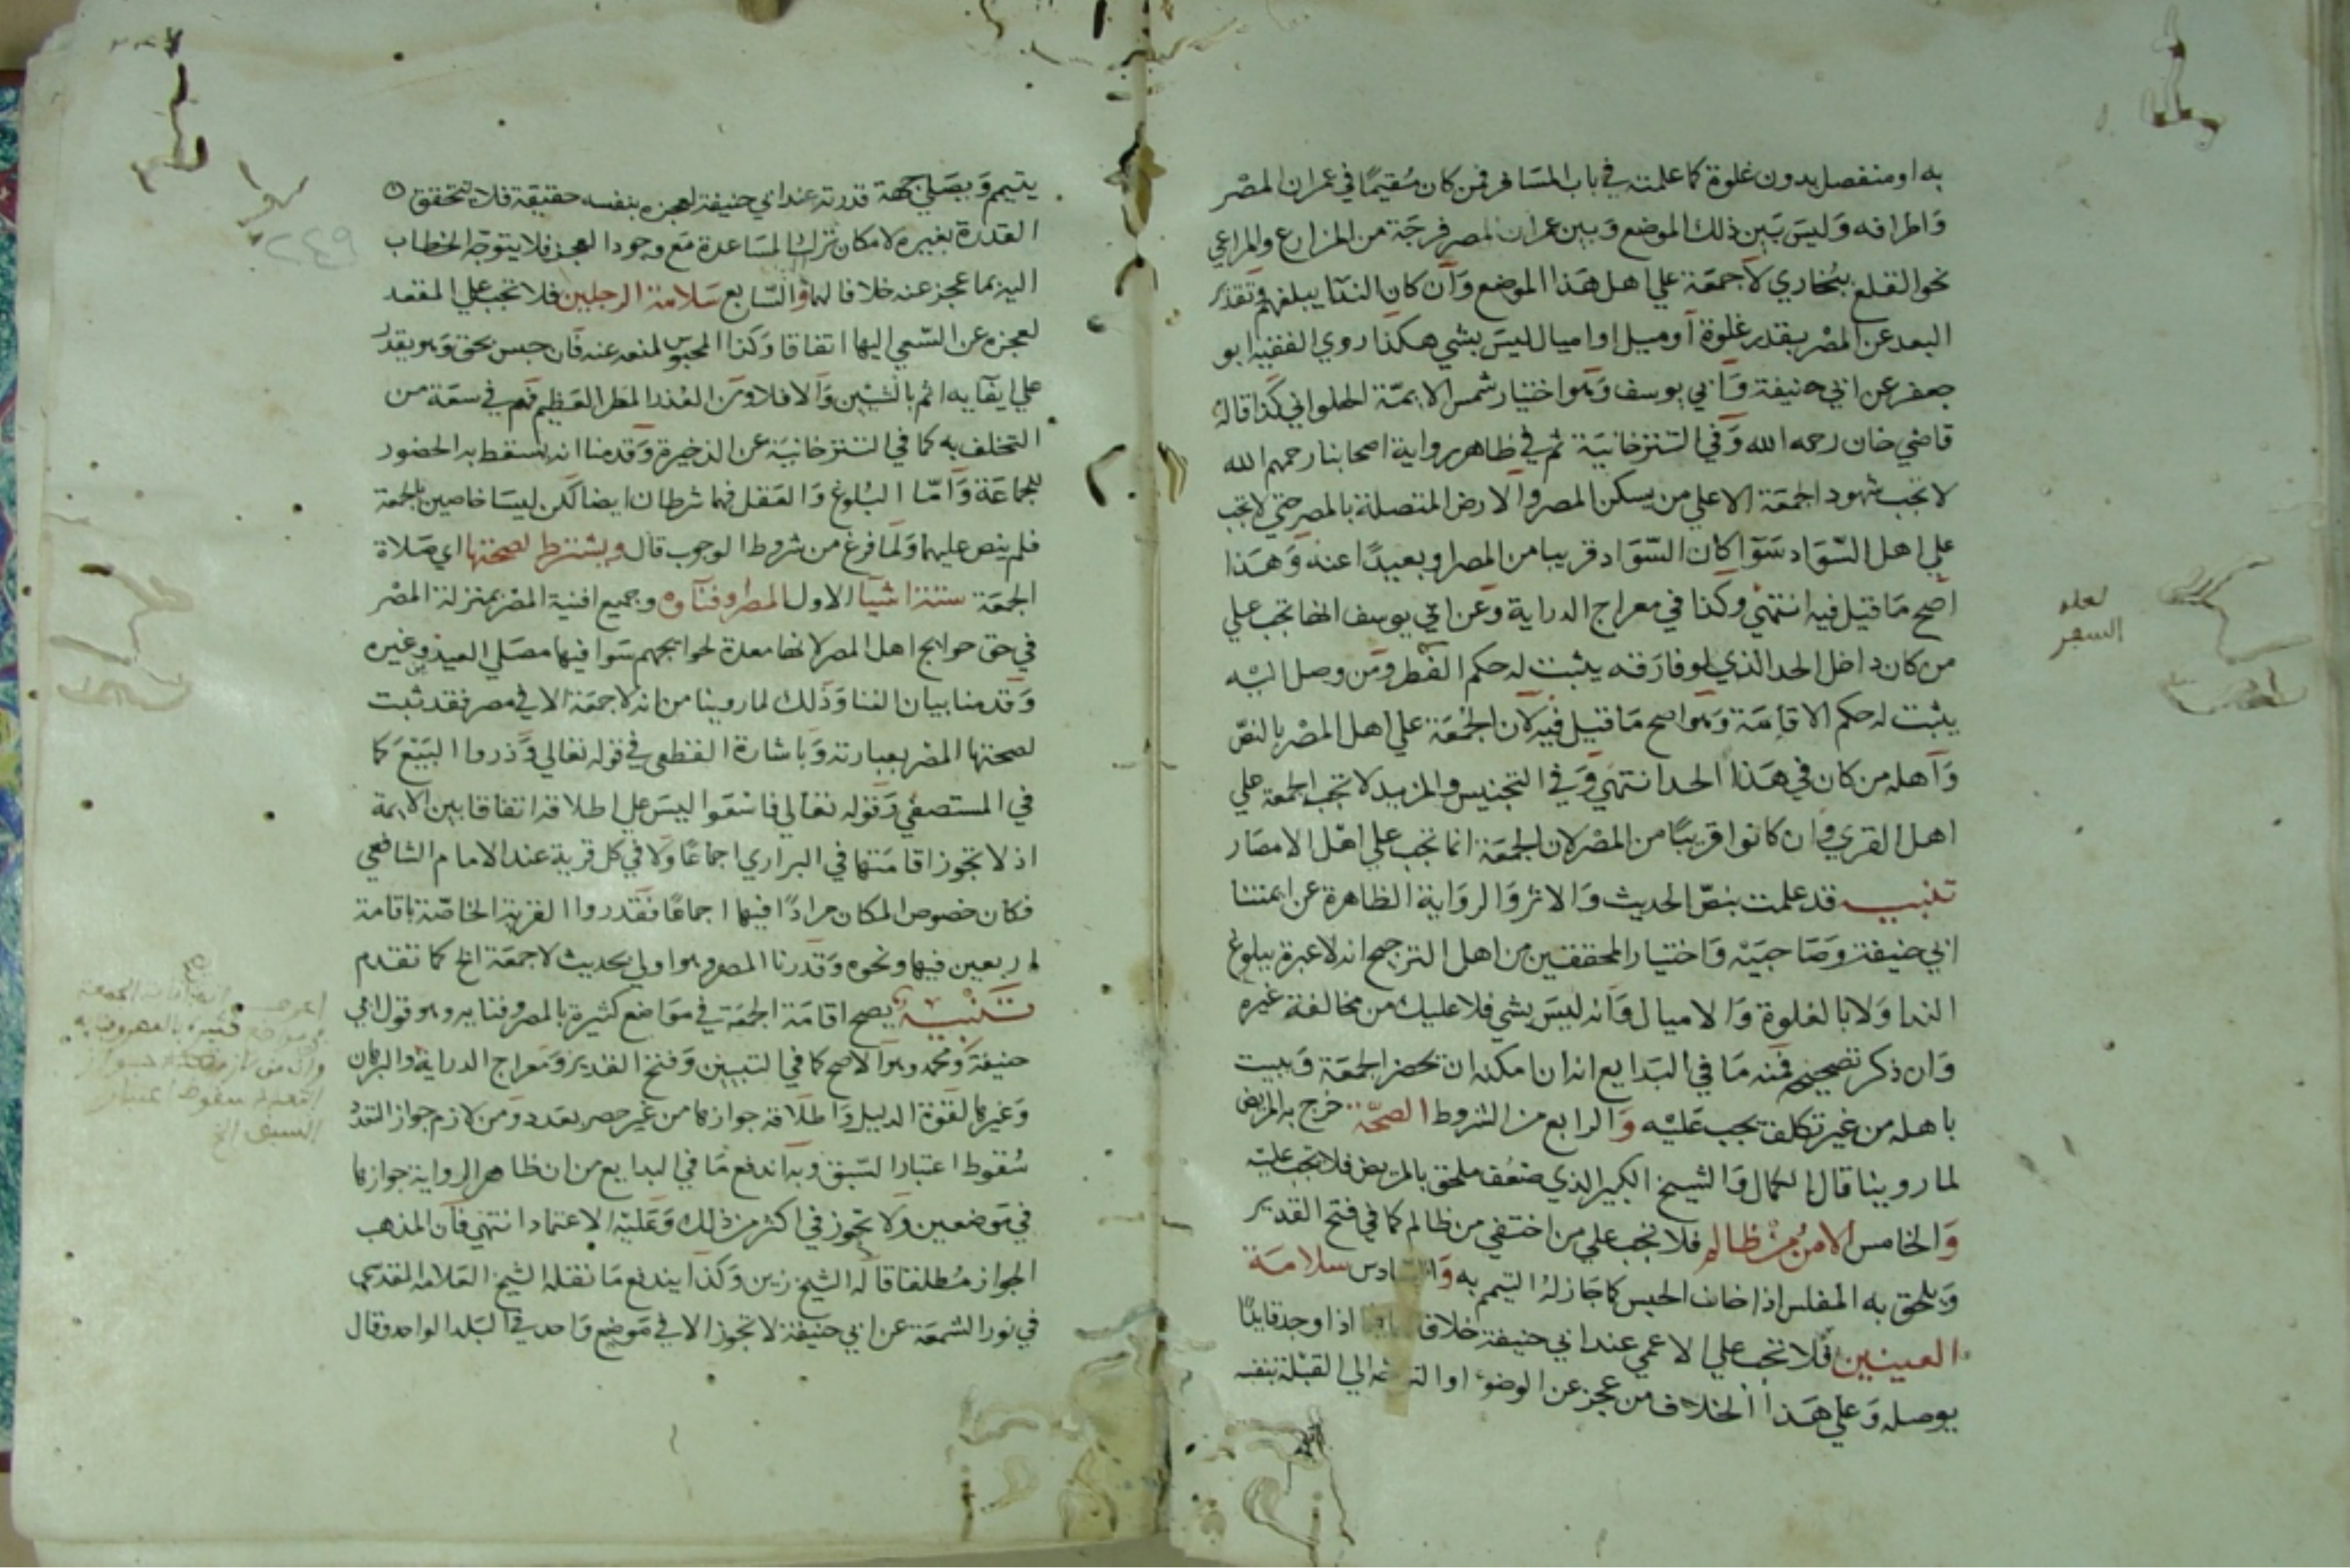 به او منفصل بدون غلوة كما علمته في باب المسافر فمن كان مقيما في عمران المصر
واطرافه وليس بين ذلك الموضع وبين عمران المصر فرجة من المزارع والمراعي
نحو القلع ببخاري لا جمعة علي اهل هذا الموضع وان كان الندا يبلغهم وتقدير
البعد عن المصر بقدر غلوة او ميل او اميال ليس بشي هكذا روي الفقيه ابو
جعفر عن ابي حنيفة وابي يوسف وهو اختيار شمس الايمة الحلواني كذا قاله
قاضي خان رحمه الله وفي التترخانية ثم في ظاهر رواية اصحابنا رحمهم الله
لا تجب شهود الجمعة الا علي من يسكن المصر والارض المتصلة بالمصر حتي لا تجب
علي اهل السواد سوا كان السواد قريبا من المصر او بعيدا عنه وهذا
اصح ما قيل فيه انتهي وكذا في معراج الدراية وعن ابي يوسف انها تجب علي
من كان داخل الحد الذي لو فارقه يثبت له حكم الفطر ومن وصل اليه
يثبت له حكم الاقامة وهو اصح ما قيل فيه لان الجمعة علي اهل المصر بالنص
واهله من كان في هذا الحد انتهي وفي التجنيس والمزيد لا تجب الجمعة علي
اهل القري وان كانوا قريبا من المصر لان الجمعة انما تجب علي اهل الامصار
تنبيه قد علمت بنص الحديث والاثر والرواية الظاهرة عن ايمتنا
ابي حنيفة وصاحبيه واختيار المحققين من اهل الترجيح انه لا عبرة ببلوغ
الندا ولا بالغلوة والاميال وانه ليس بشي فلا عليك من مخالفة غيره
وان ذكر تصحيحه فمنه ما في البدايع انه ان امكنه ان يحضر الجمعة ويبيت
باهله من غير تكلف يجب عليه والرابع من الشروط الصحة خرج به المريض
لما روينا قال الكمال والشيخ الكبير الذي ضعف ملحق بالمريض فلا تجب عليه
والخامس الامن من ظالم فلا تجب علي من اختفي من ظالم كما في فتح القدير
ويلحق به المفلس اذا خاف الحبس كما جاز له التيمم به والسادس سلامة
العينين فلا تجب علي الاعمي عند ابي حنيفة خلافا اذا وجد قايدا
يوصله وعلي هذا الخلاف من عجز عن الوضوء او التوجه الي القبلة بنفسه
لعله
السفر
يتيمم ويصلي جهة قدرته عند ابي حنيفة لعجزه بنفسه حقيقة فلا تتحقق
القدرة بغيره لامكان ترك المساعدة مع وجود العجز فلا يتوجه الخطاب
اليه بما عجز عنه خلافا لهما والسابع سلامة الرجلين فلا تجب علي المقعد
لعجزه عن السعي اليها اتفاقا وكذا المحبوس لمنعه عنه فان حبس بحق وهو يقدر
علي ايفايه اثم بالشيين والا فلا ومن العذر المطر العظيم فهم في سعة من
التخلف به كما في التترخانية عن الذخيرة وقدمنا انه يسقط به الحضور
للجماعة واما البلوغ والعقل فهما شرطان ايضا لكن ليسا خاصين بالجمعة
فلم ينص عليهما ولما فرغ من شروط الوجوب قال ويشترط لصحتها اي صلاة
الجمعة ستة اشيا الاول المصر وفناؤه وجميع افنية المصر بمنزلة المصر
في حق حوايج اهل المصر لانها معدة لحوايجهم سوا فيها مصلي العيد وغيره
وقدمنا بيان الفنا وذلك لما روينا من انه لا جمعة الا في مصر فقد ثبت
لصحتها المصر بعبارته وباشارة القطعي في قوله تعالي وذروا البيع كما
في المستصفي وقوله تعالي فاسعوا ليس علي اطلاقه اتفاقا بين الايمة
اذ لا تجوز اقامتها في البراري اجماعا ولا في كل قرية عند الامام الشافعي
فكان خصوص المكان مرادا فيها اجماعا فقدروا القرية الخاصة باقامة
اربعين فيها ونحوه وقدرنا المصر وهو اولي بحديث لا جمعة الخ كما تقدم
تنبيه يصح اقامة الجمعة في مواضع كثيرة بالمصر وفنايه وهو قول ابي
حنيفة ومحمد وهو الاصح كما في التبيين وفتح القدير ومعراج الدراية والبرهان
وغيرها لقوة الدليل واطلاقه جوازها من غير حصر بعدد ومن لازم جواز التعدد
سقوط اعتبار السبق وبه اندفع ما في البدايع من ان ظاهر الرواية جوازها
في موضعين ولا تجوز في اكثر من ذلك وعليه الاعتماد انتهي فان المذهب
الجواز مطلقا قاله الشيخ زين وكذا يندفع ما نقله الشيخ العلامة المقدسي
في نور الشمعة عن ابي حنيفة لا تجوز الا في موضع واحد في البلد الواحد وقال
٢٤٩
سقوط اعتبار
السبق الخ